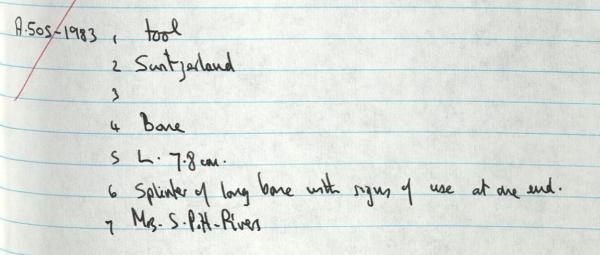 A.505-1983 1 tool
2 Switzerland
3
4 Bone
5 L. 7.8 cm.
6 Splinter of long bone with signs of use at one end.
7 Mrs. S. P.H-Rivers